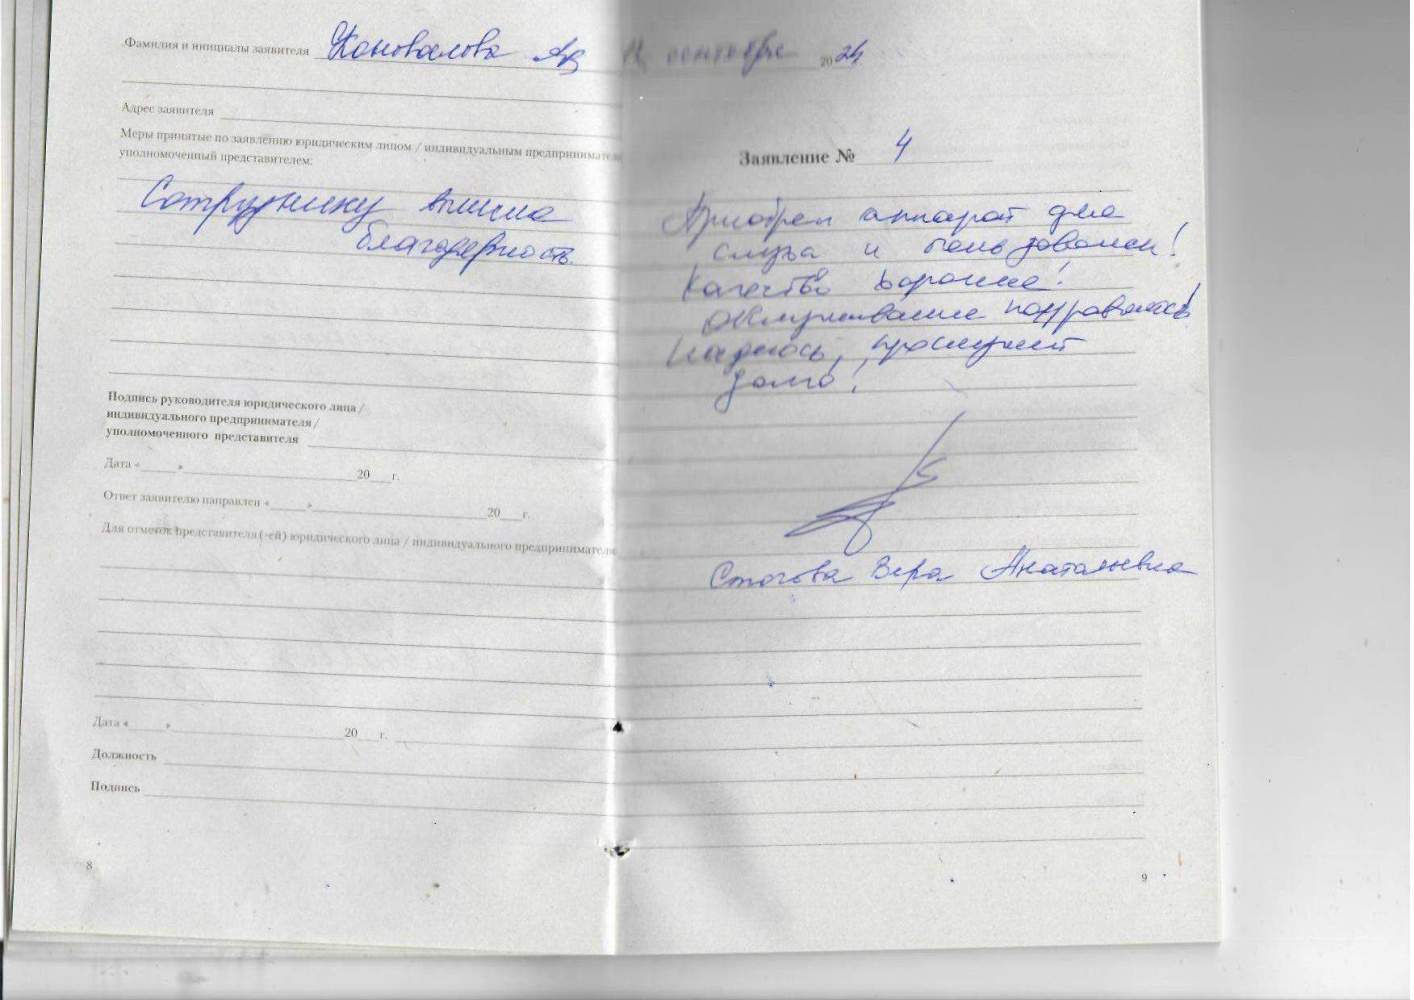 Фамилия и инициалы заявителя Коновалова АВ
Адрес заявителя
Меры принятые по заявлению юридическим лицом / индивидуальным предпринимателе
уполномоченный представителем:
Сотруднику выписа
благодарность.
Подпись руководителя юридического лица /
индивидуального предпринимателя /
уполномоченного представителя
Дата «____»____20__г.
Ответ заявителю направлен «____»____20__г.
Для отметок представителя (-ей) юридического лица / индивидуального предпринимателя
Дата «____»____20__г.
Должность
Подпись
8
сентября 2024
Заявление № 4
Приобрел аппарат для
слуха и пользовалась!
Качество хорошее!
Обслуживание понравилось!
Надеюсь, прослужит
долго!
Стогова Вера Анатальевна
9